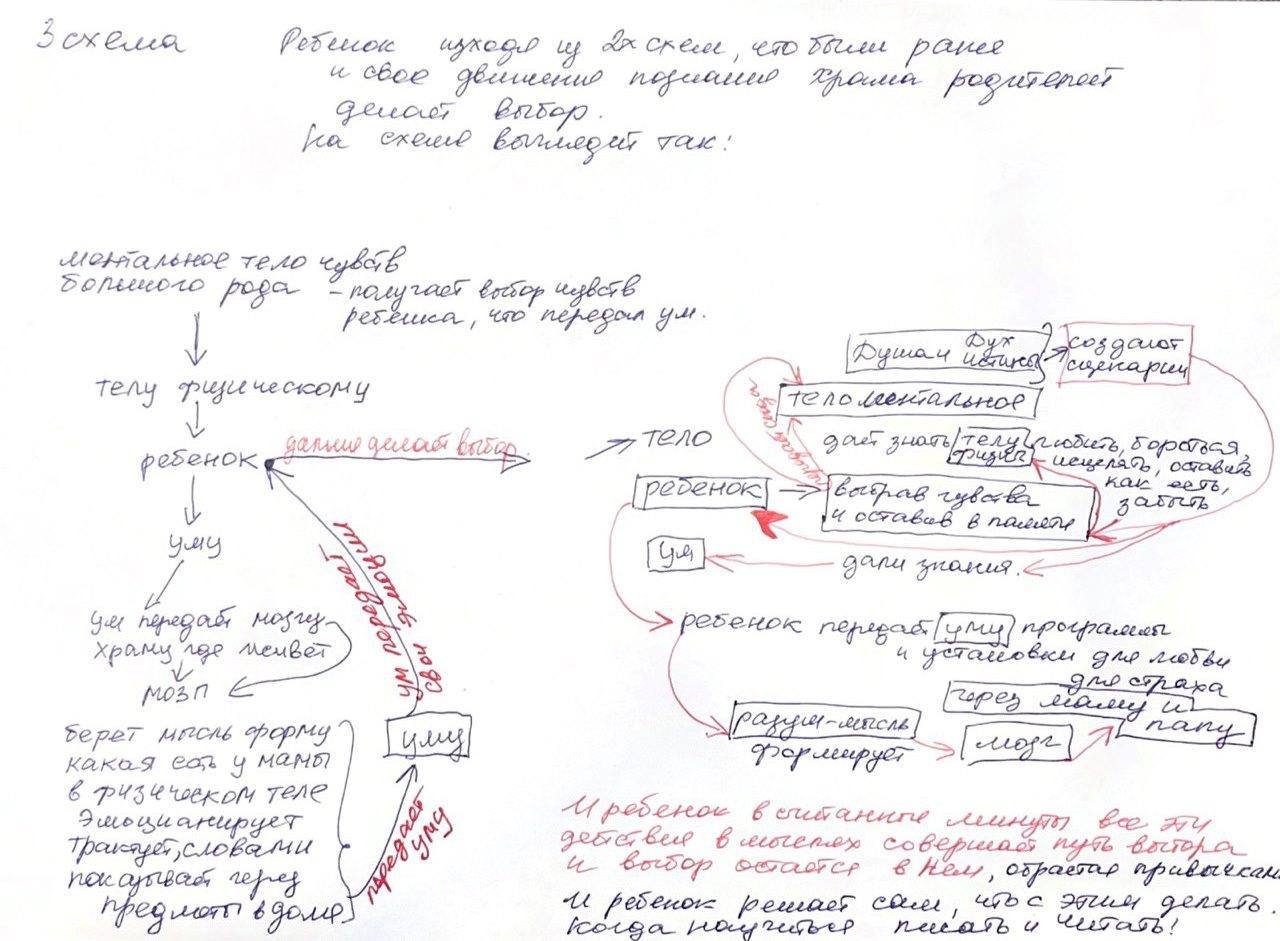 3 схема
Ребенок исходя из 2х схем, что были ранее
и свое движение познание храма родителей
делает выбор.
На схеме выглядит так:
ментальное тело чувств
большого рода - получает выбор чувств
ребенка, что передал ум.
телу физическому
ребенок
дальше делает выбор
уму
ум передаёт мозгу
храму где живёт
мозг
берет мысль форму
какая есть у мамы
в физическом теле
Эмоцианирует
трактует, словами
показывает через
предметы в доме
передает
уму
уму
ум передает
свои эмоции
Душа и Дух
истины
создают
сценарии
тело ментальное
передает сюда
тело
дает знать телу
физич
любить, бороться,
исцелять, оставить
как есть,
забыть
ребенок
выбрав чувства
и оставив в памяти
ум
дали знания.
ребенок передает уму программы
и установки для любви
для страха
через маму и
папу
разум-мысль
формирует
мозг
И ребенок в считанные минуты все эти
действия в мыслях совершает путь выбора
и выбор остается в нем, обрастая привычками
И ребенок решает сам, что с этим делать.
Когда научиться писать и читать!